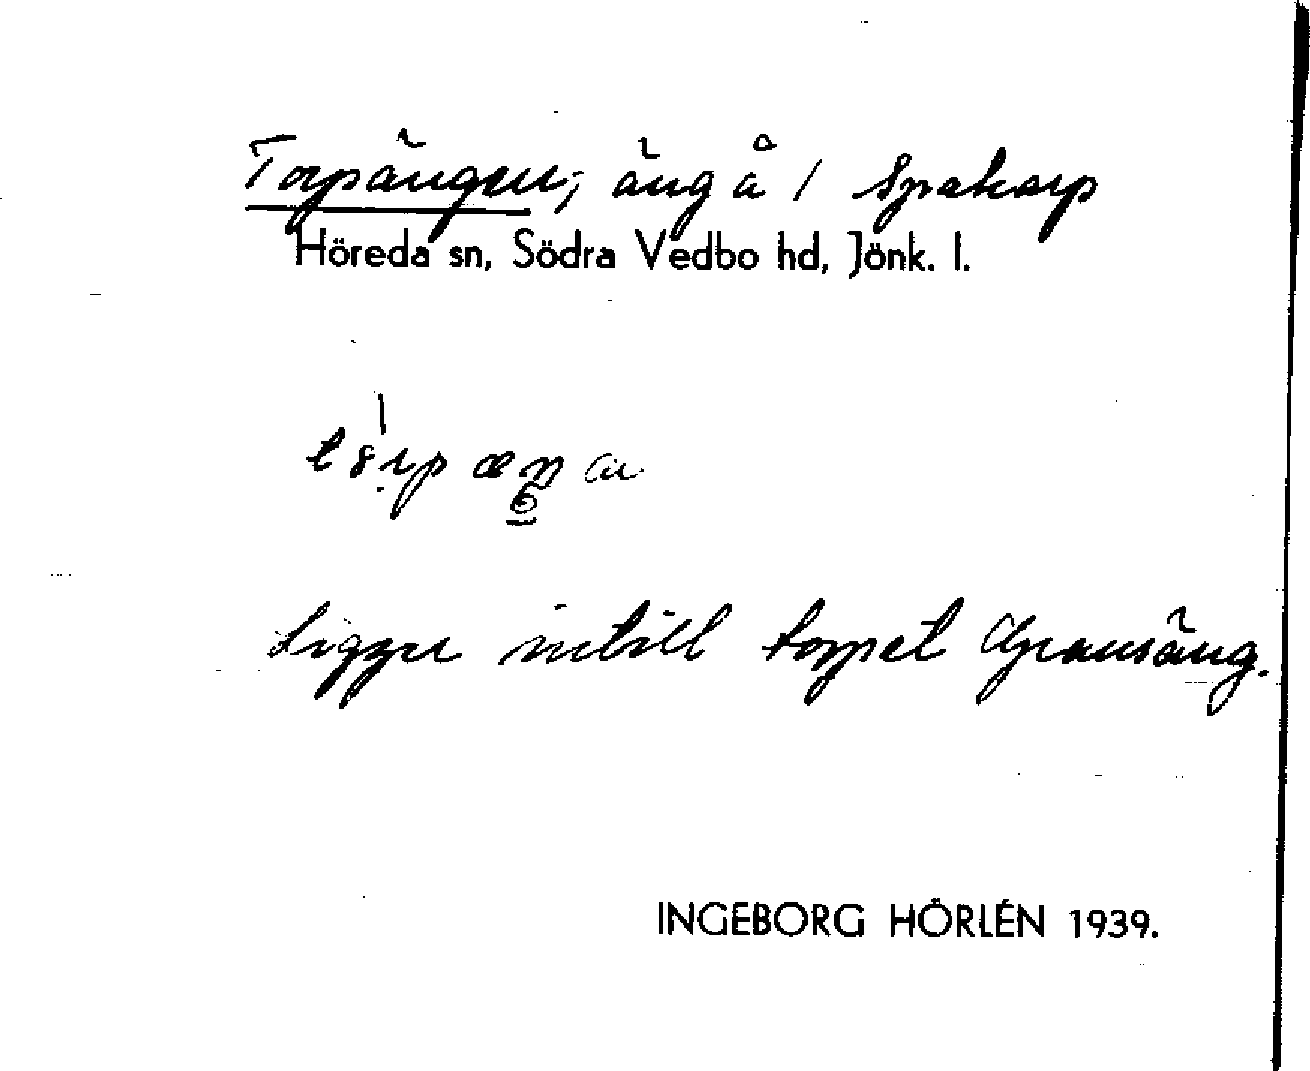 Torpängen; äng å / Spakarp
Höreda sn, Södra Vedbo hd, Jönk. l.
Ligger intill torpet Gransäng.
INGEBORG HÖRLÉN 1939.